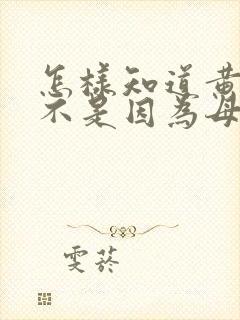 怎樣知道黃
不是因為母
雯菸